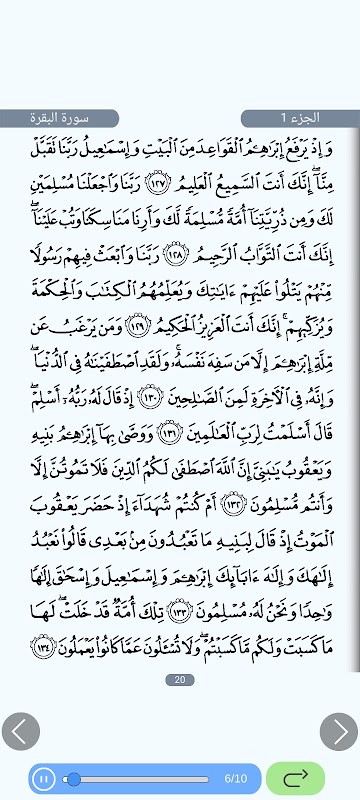 سورة البقرة
الجزء 1
وَإِذْ يَرْفَعُ إِبْرَٰهِـۧمُ ٱلْقَوَاعِدَ مِنَ ٱلْبَيْتِ وَإِسْمَٰعِيلُ رَبَّنَا تَقَبَّلْ
مِنَّآ ۖ إِنَّكَ أَنتَ ٱلسَّمِيعُ ٱلْعَلِيمُ ١٢٧ رَبَّنَا وَٱجْعَلْنَا مُسْلِمَيْنِ
لَكَ وَمِن ذُرِّيَّتِنَآ أُمَّةً مُّسْلِمَةً لَّكَ وَأَرِنَا مَنَاسِكَنَا وَتُبْ عَلَيْنَآ ۖ
إِنَّكَ أَنتَ ٱلتَّوَّابُ ٱلرَّحِيمُ ١٢٨ رَبَّنَا وَٱبْعَثْ فِيهِمْ رَسُولًا
مِّنْهُمْ يَتْلُوا۟ عَلَيْهِمْ ءَايَٰتِكَ وَيُعَلِّمُهُمُ ٱلْكِتَٰبَ وَٱلْحِكْمَةَ
وَيُزَكِّيهِمْ ۚ إِنَّكَ أَنتَ ٱلْعَزِيزُ ٱلْحَكِيمُ ١٢٩ وَمَن يَرْغَبُ عَن
مِّلَّةِ إِبْرَٰهِـۧمَ إِلَّا مَن سَفِهَ نَفْسَهُۥ ۚ وَلَقَدِ ٱصْطَفَيْنَٰهُ فِى ٱلدُّنْيَا ۖ
وَإِنَّهُۥ فِى ٱلْءَاخِرَةِ لَمِنَ ٱلصَّٰلِحِينَ ١٣٠ إِذْ قَالَ لَهُۥ رَبُّهُۥٓ أَسْلِمْ ۖ
قَالَ أَسْلَمْتُ لِرَبِّ ٱلْعَٰلَمِينَ ١٣١ وَوَصَّىٰ بِهَآ إِبْرَٰهِـۧمُ بَنِيهِ
وَيَعْقُوبُ يَٰبَنِىَّ إِنَّ ٱللَّهَ ٱصْطَفَىٰ لَكُمُ ٱلدِّينَ فَلَا تَمُوتُنَّ إِلَّا
وَأَنتُم مُّسْلِمُونَ ١٣٢ أَمْ كُنتُمْ شُهَدَآءَ إِذْ حَضَرَ يَعْقُوبَ
ٱلْمَوْتُ إِذْ قَالَ لِبَنِيهِ مَا تَعْبُدُونَ مِنۢ بَعْدِى قَالُوا۟ نَعْبُدُ
إِلَٰهَكَ وَإِلَٰهَ ءَابَآئِكَ إِبْرَٰهِـۧمَ وَإِسْمَٰعِيلَ وَإِسْحَٰقَ إِلَٰهًا
وَٰحِدًا وَنَحْنُ لَهُۥ مُسْلِمُونَ ١٣٣ تِلْكَ أُمَّةٌ قَدْ خَلَتْ ۖ لَهَا
مَا كَسَبَتْ وَلَكُم مَّا كَسَبْتُمْ ۖ وَلَا تُسْـَٔلُونَ عَمَّا كَانُوا۟ يَعْمَلُونَ ١٣٤
20
6/10